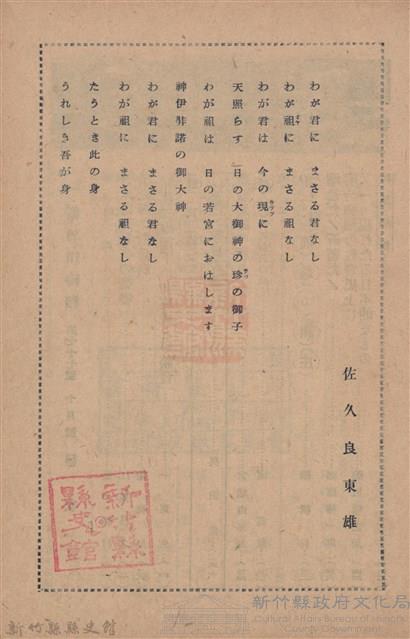 佐久良東雄
わが君に まさる君なし
わが祖に まさる祖なし
わが君は 今の現に
天照らす 日の大御神の珍の御子
わが祖は 日の若宮におはします
神伊弉諾の御大神
わが君に まさる君なし
わが祖に まさる祖なし
たうとき此の身
うれしき吾が身
新竹縣縣史館
新竹縣政府文化局
Cultural Affairs Bureau of Hsinchu
County Government